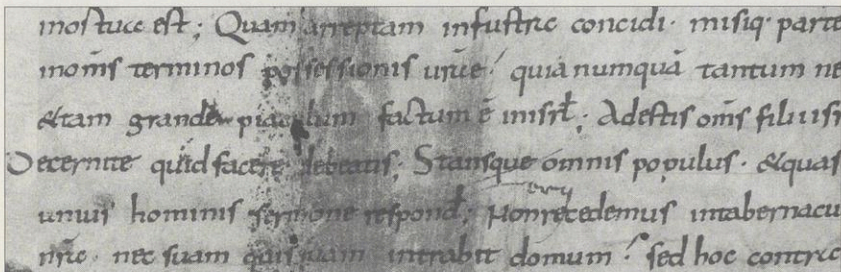 mortua est; Quam arreptam infustra concidi· misiq· parte
inom̄s terminos possessionis ur̄ae quia numquā tantum ne
&tam grande piaculum factum ē inisrł; Adestis om̄s filii isr
Decernite quid facere debeatis; Stansque omnis populus· &quas
unius hominis sermone respond̄; Non recedemus intabernacu
nr̄a· nec suam quisquam intrabit domum sed hoc contra